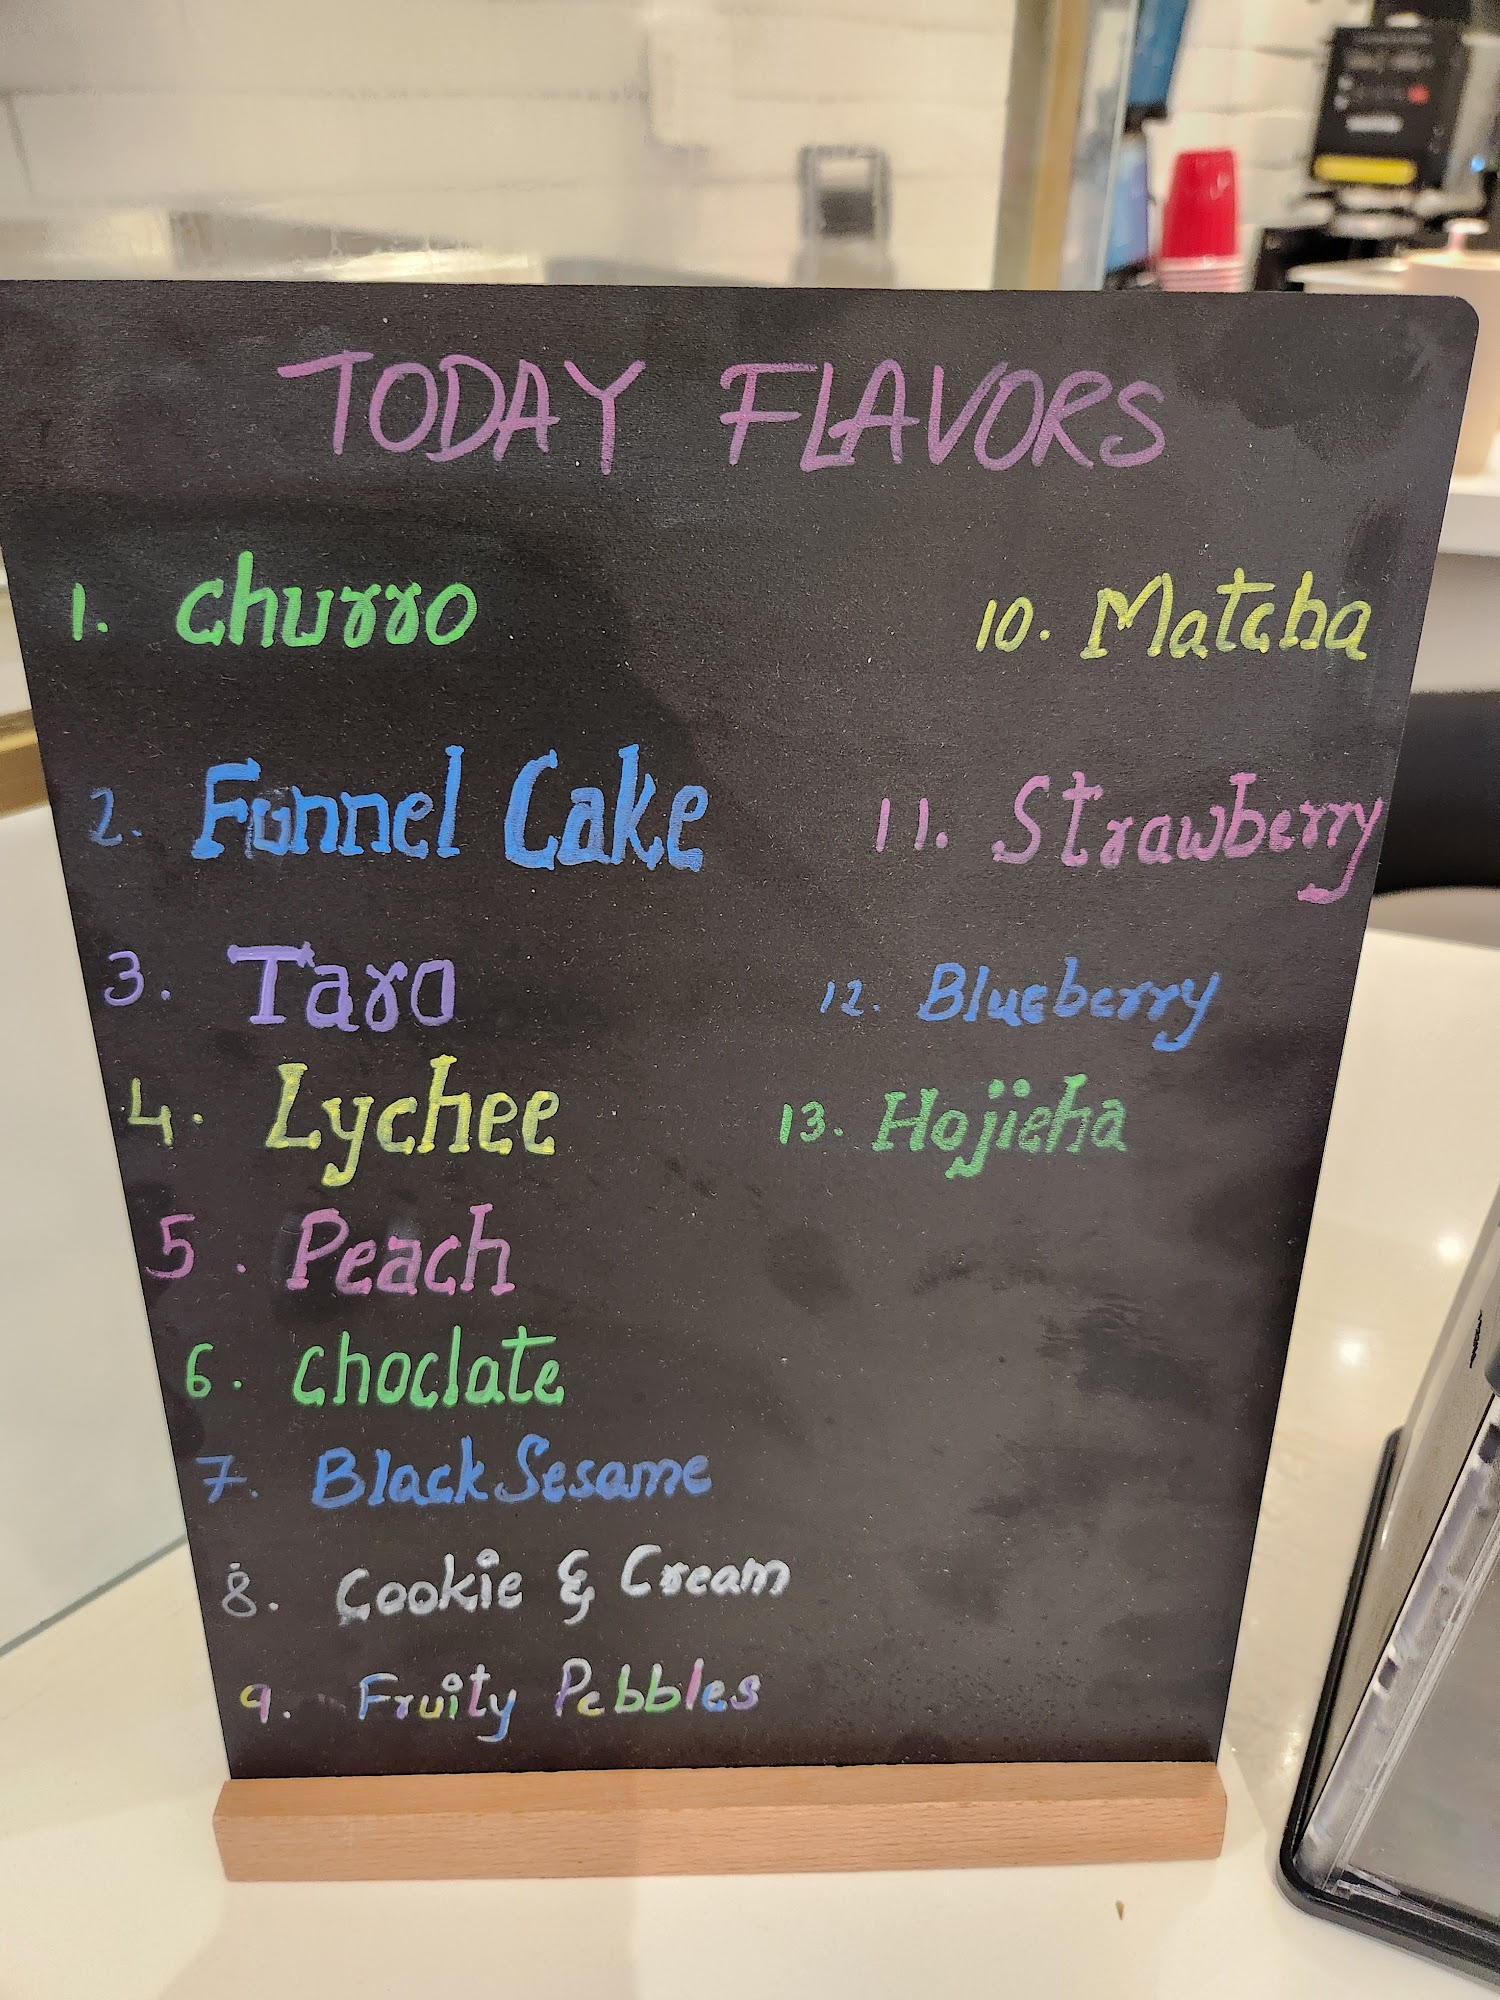 TODAY FLAVORS
1. churro
2. Funnel Cake
3. Taro
4. Lychee
5. Peach
6. choclate
7. Black Sesame
8. Cookie & Cream
9. Fruity Pebbles
10. Matcha
11. Strawberry
12. Blueberry
13. Hojicha